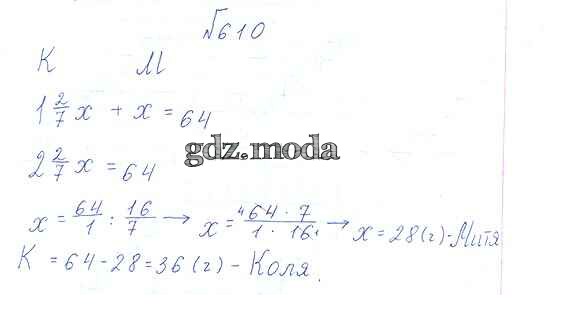 №610
К М
1 2/7 x + x = 64
gdz.moda
2 2/7 x = 64
x = 64/1 : 16/7 → x = 4 64 · 7 / 1 · 16 1 → x = 28 (г) - Митя
К = 64 - 28 = 36 (г) - Коля.